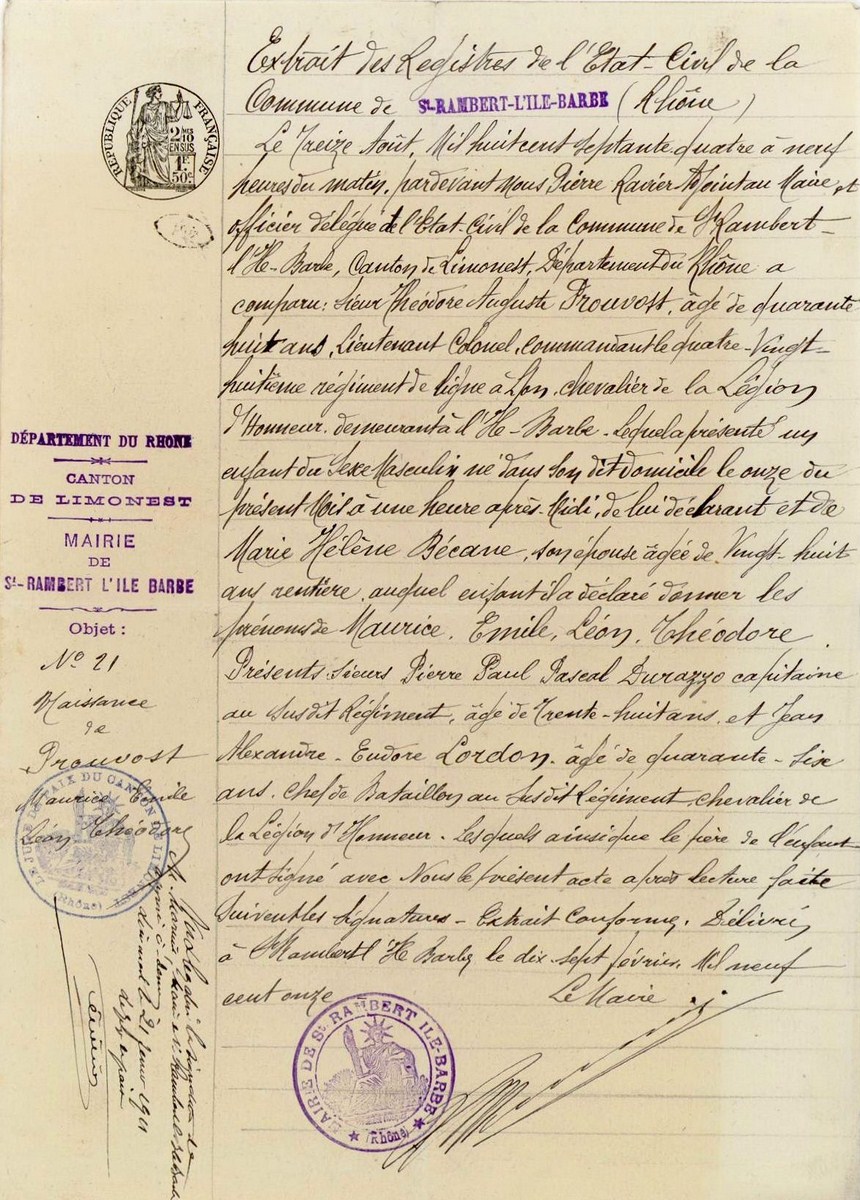 Extrait des Registres de l'Etat-Civil de la
Commune de St-RAMBERT-L'ILE-BARBE (Rhône)
Le Treize Août, Mil huit cent septante quatre à neuf
heures du matin, pardevant Nous Pierre Ravier Adjoint au Maire et
officier délégué de l'Etat-Civil de la Commune de St Rambert-
l'Ile-Barbe, Canton de Limonest, Département du Rhône a
comparu: Sieur Théodore Auguste Prouvost, âgé de quarante
huit ans, Lieutenant Colonel, commandant le quatre-Vingt-
huitième régiment de ligne à Lyon, chevalier de la Légion
d'Honneur, demeurant à l'Ile-Barbe - Lequel a présenté un
enfant du Sexe Masculin né dans son dit domicile le onze du
présent Mois à une heure après-Midi, de lui déclarant et de
Marie Hélène Bécane, son épouse âgée de Vingt-huit
ans rentière, auquel enfant il a déclaré donner les
prénoms de Maurice, Emile, Léon, Théodore.
Présents: Sieurs Pierre Paul Pascal Durazzo capitaine
au susdit Régiment, âgé de Trente-huit ans, et Jean
Alexandre-Eudore Lordon, âgé de quarante-Six
ans, chef de Bataillon au susdit Régiment chevalier de
la Légion d'Honneur - Lesquels ainsi que le père de l'enfant
ont signé avec Nous le présent acte après lecture faite
Suivent les signatures - Extrait Conforme, Délivré
à St Rambert l'Ile Barbe le dix-sept février, Mil neuf
cent onze Le Maire
RÉPUBLIQUE FRANÇAISE
2/10
EN SUS
1F
50c
DÉPARTEMENT DU RHONE
CANTON
DE LIMONEST
MAIRIE
DE
St-RAMBERT L'ILE BARBE
Objet:
No 21
Naissance
de
Prouvost
Maurice Emile
Léon Théodore
LE JUGE DE PAIX DU CANTON DE LIMONEST
(Rhône)
MAIRIE DE St RAMBERT ILE-BARBE
(Rhône)